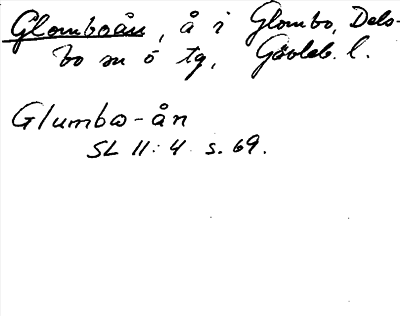 Glomboån, å i Glombo, Dels-
bo sn ö tg, Gävleb. l.
Glumbo-ån
SL II: 4 s. 69.